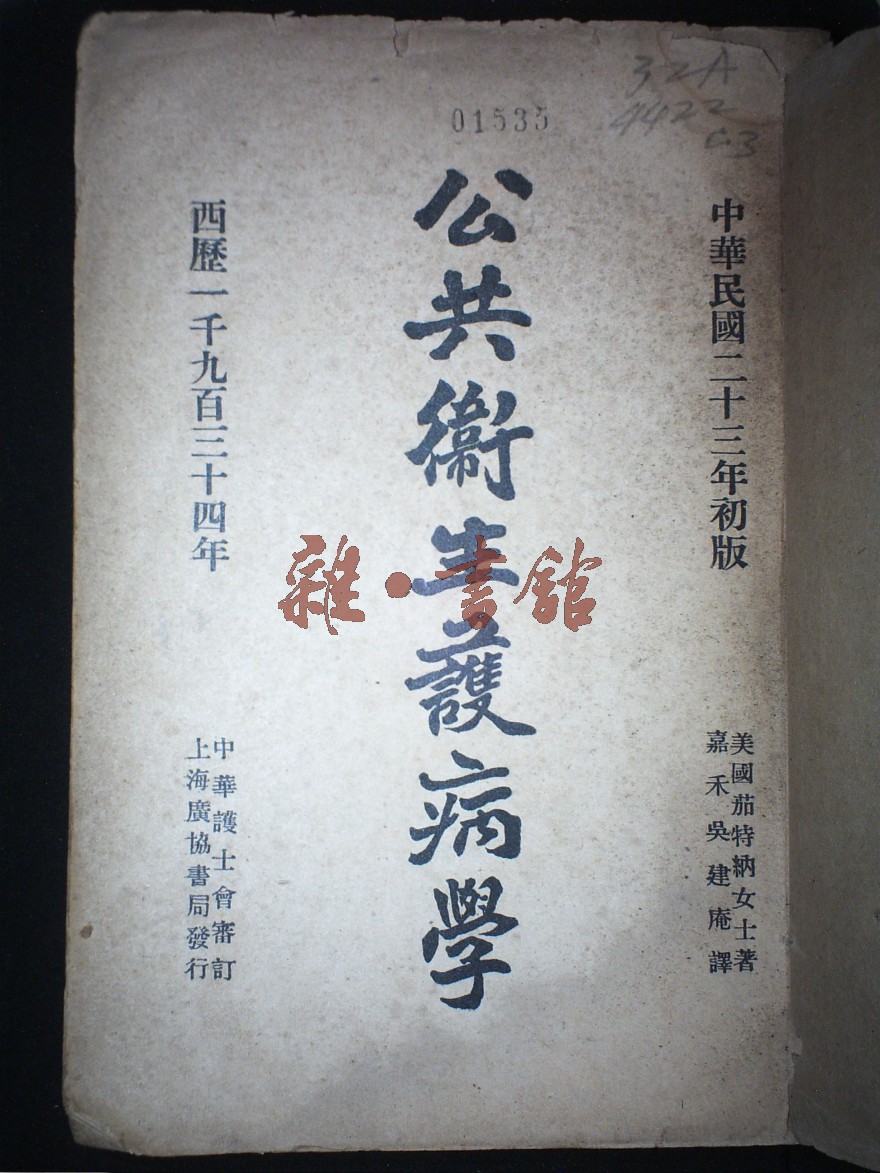 32A
4422
c3
01535
中華民國二十三年初版
美國茄特納女士著
嘉禾吳建庵譯
公共衞生護病學
西歷一千九百三十四年
中華護士會審訂
上海廣協書局發行
雜·書館